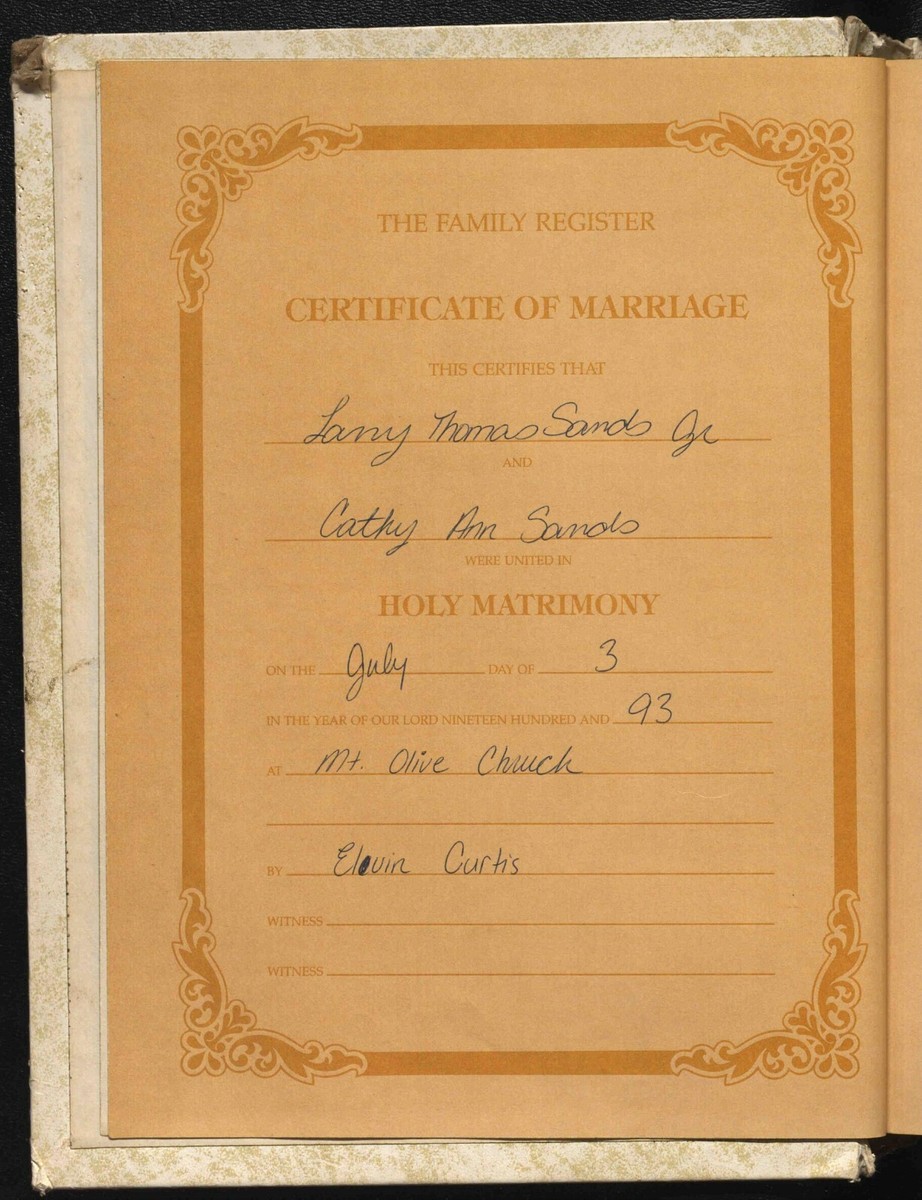 THE FAMILY REGISTER
CERTIFICATE OF MARRIAGE
THIS CERTIFIES THAT
Larry Thomas Sands Jr
AND
Cathy Ann Sands
WERE UNITED IN
HOLY MATRIMONY
ON THE July DAY OF 3
IN THE YEAR OF OUR LORD NINETEEN HUNDRED AND 93
AT Mt. Olive Church
BY Elvin Curtis
WITNESS
WITNESS